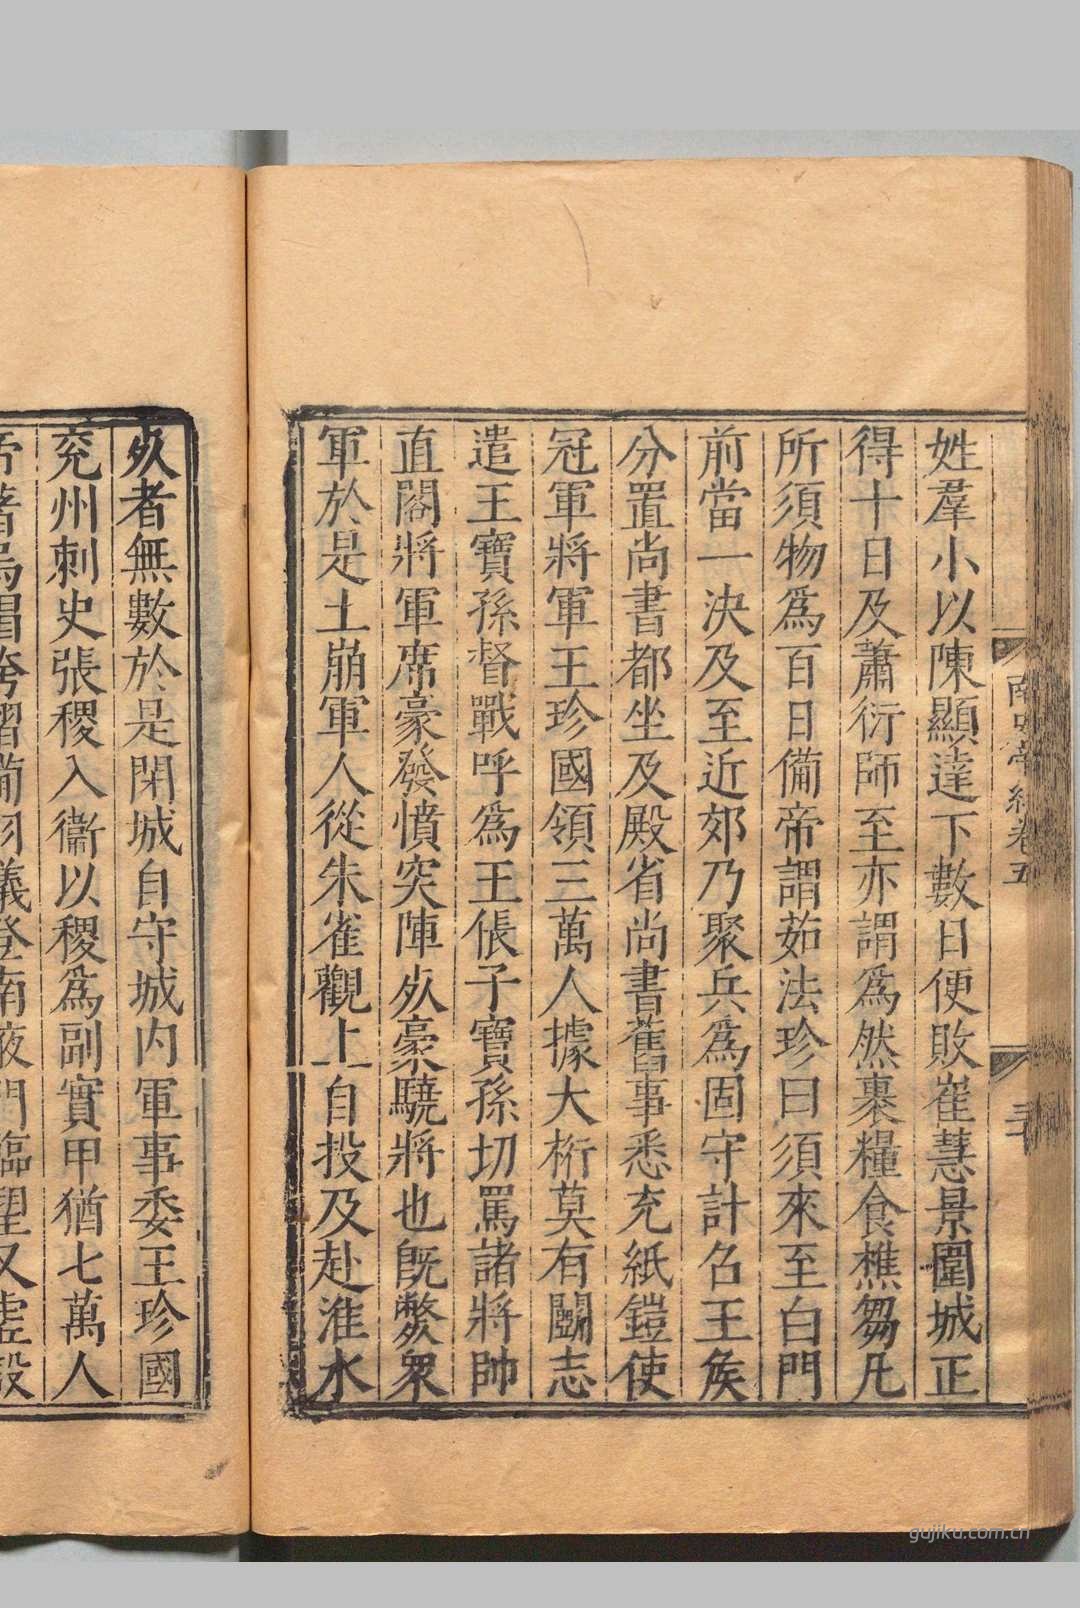 南史帝紀卷五
三
姓羣小以陳顯達下數日便敗崔慧景圍城正
得十日及蕭衍師至亦謂爲然裹糧食樵芻凡
所須物爲百日備帝謂茹法珍曰須來至白門
前當一決及至近郊乃聚兵爲固守計召王侯
分置尚書都坐及殿省尚書舊事悉充紙鎧使
冠軍將軍王珍國領三萬人據大桁莫有鬭志
遣王寶孫督戰呼爲王倀子寶孫切罵諸將帥
直閤將軍席豪發憤突陣㱙豪驍將也旣斃衆
軍於是土崩軍人從朱雀觀上自投及赴淮水
㱙者無數於是閉城自守城內軍事委王珍國
兖州刺史張稷入衞以稷爲副實甲猶七萬人
帝著烏帽袴褶備羽儀登南掖門臨望又虛設
gujiku.com.cn